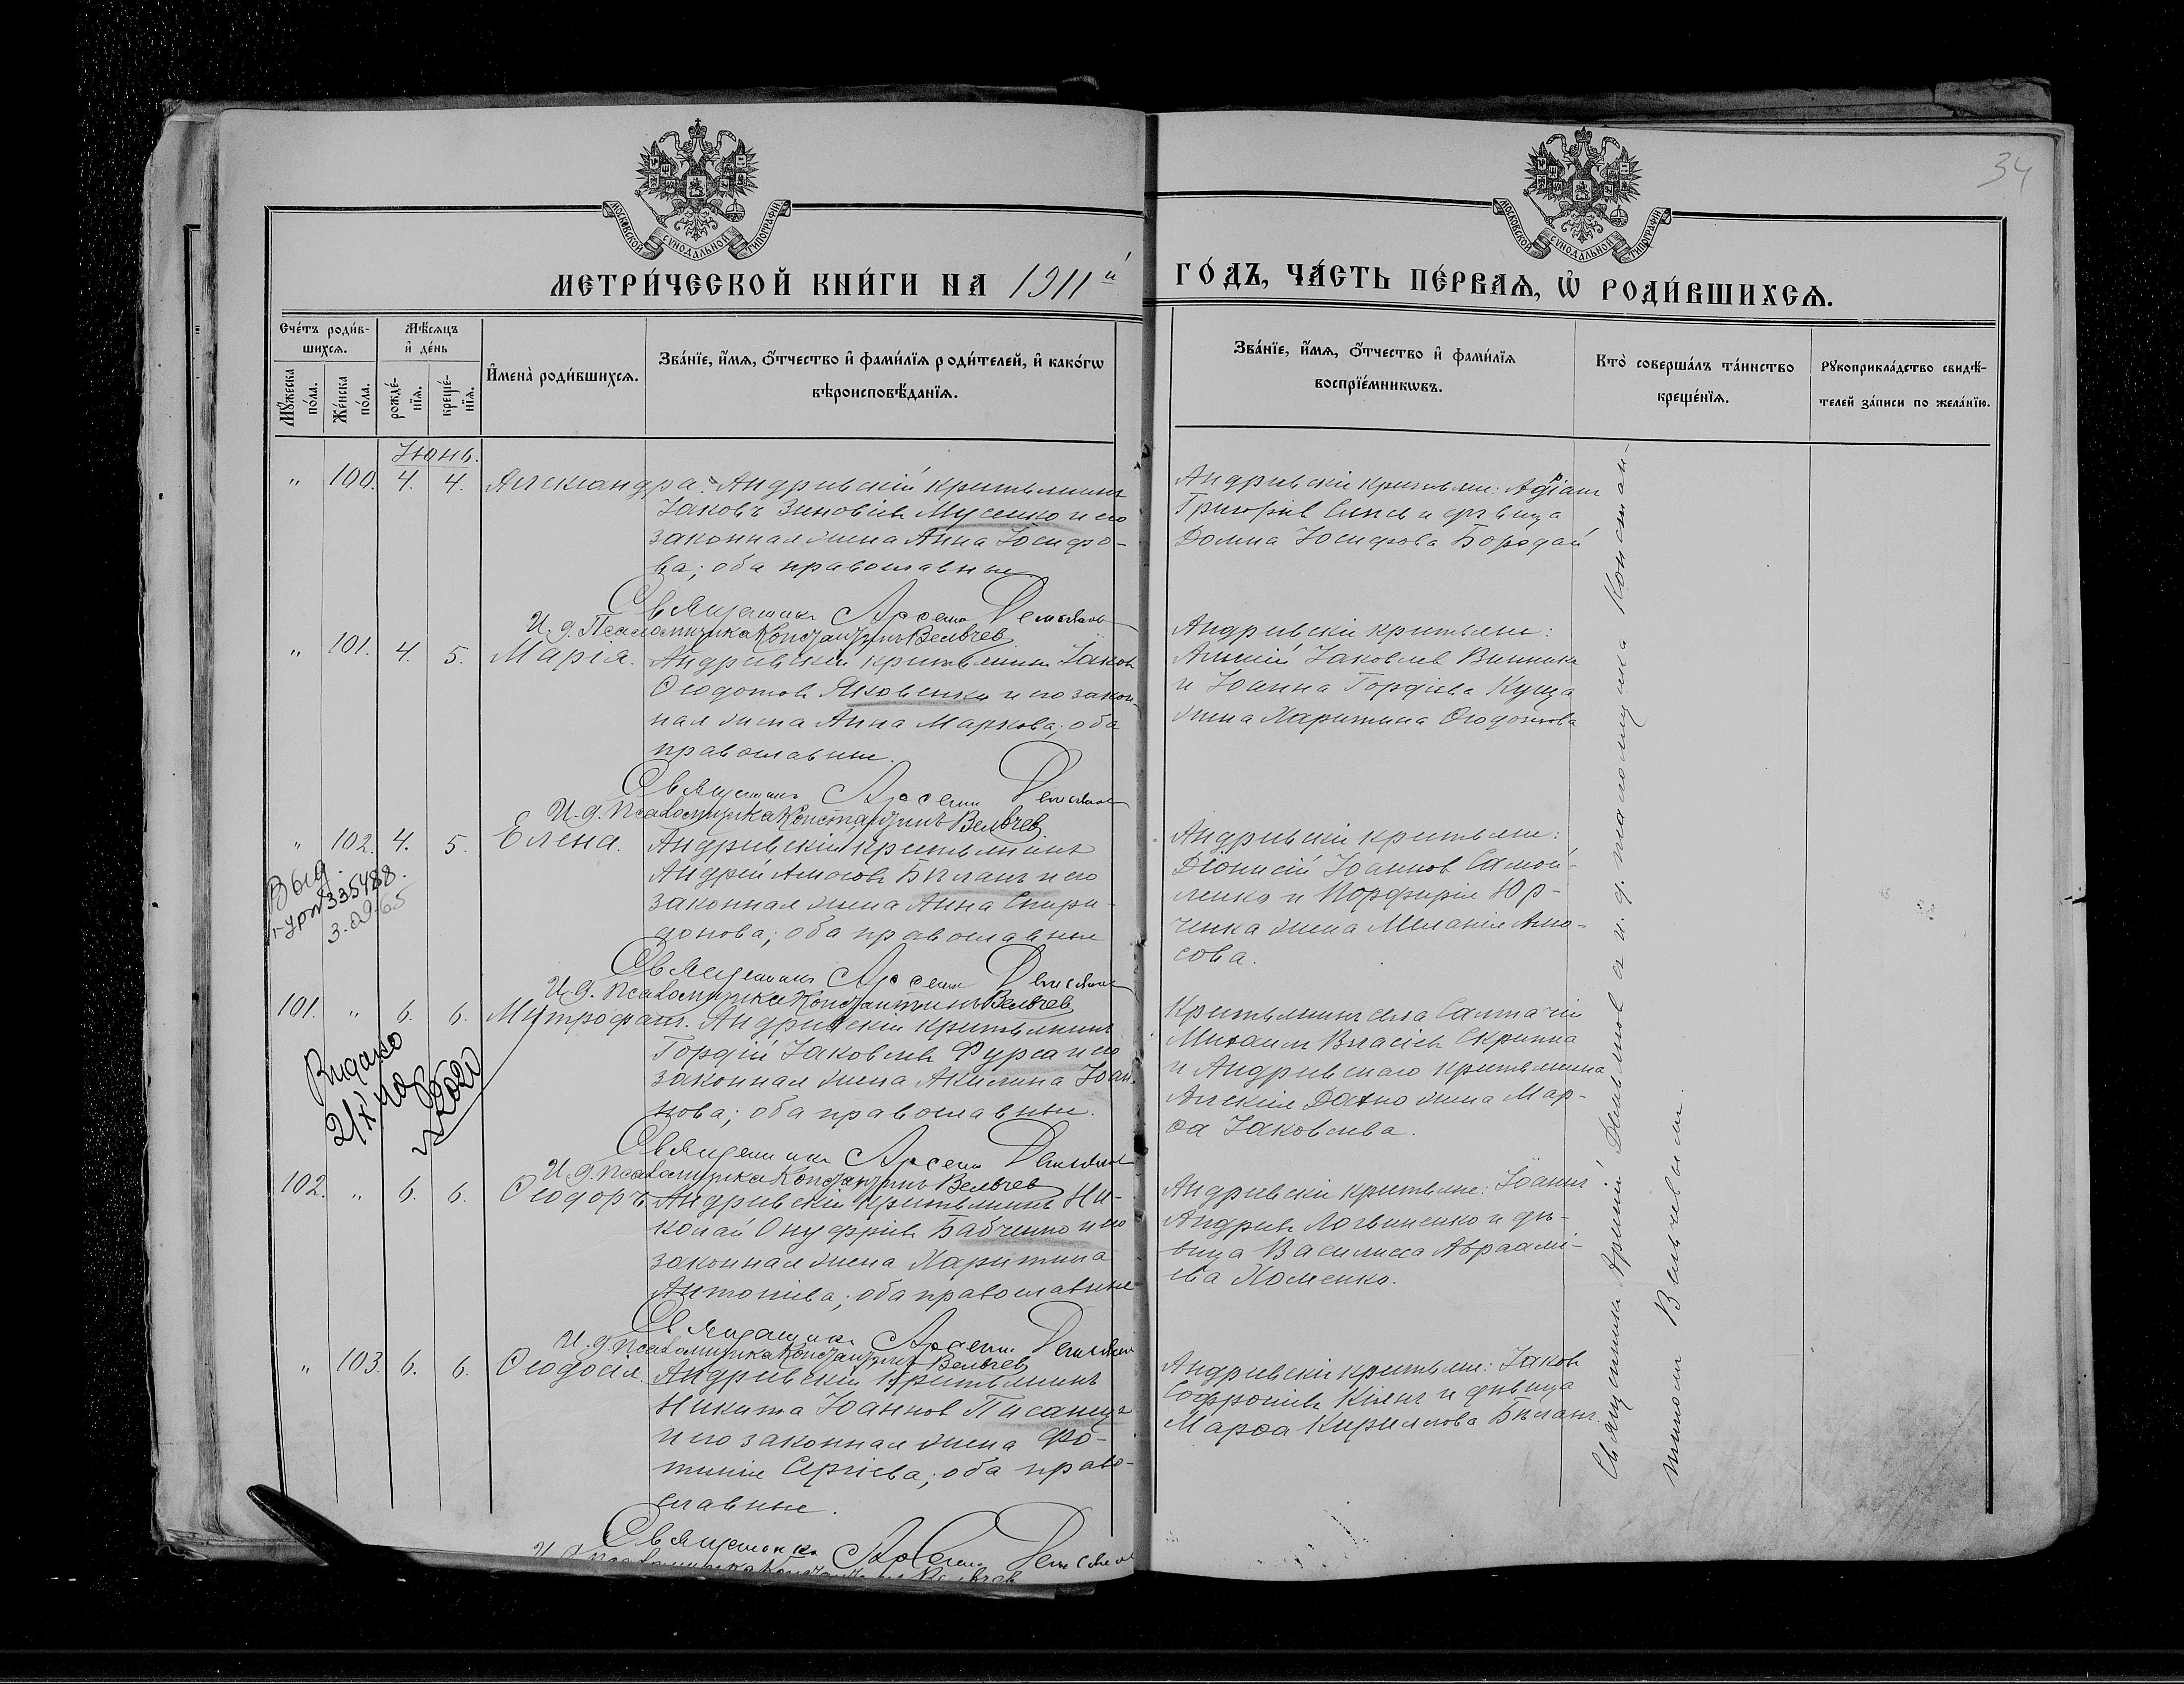 34
МОСКОВСКОЙ СѴНОДАЛЬНОЙ ТИПОГРАФІИ
МОСКОВСКОЙ СѴНОДАЛЬНОЙ ТИПОГРАФІИ
МЕТРИ́ЧЕСКОЙ КНИ́ГИ НА 1911й
ГО́ДЪ, ЧА́СТЬ ПЕ́РВАѦ, Ѡ РОДИ́ВШИХСѦ.
Сче́тъ роди́в-
шихсѧ.
Мꙋ́жеска
по́ла.
Же́нска
по́ла.
Мѣ́сѧцъ
и҆ де́нь
рожде́-
нїѧ.
креще́-
нїѧ.
И҆мена̀ роди́вшихсѧ.
Зва́нїе, и҆́мѧ, ѻ҆́тчество и҆ фами́лїѧ роди́телей, и҆ како́гѡ
вѣроисповѣ́данїѧ.
Зва́нїе, и҆́мѧ, ѻ҆́тчество и҆ фами́лїѧ
воспрїе́мникѡвъ.
Кто̀ соверша́лъ та́инство
креще́нїѧ.
Рꙋкоприкла́дство свидѣ́-
телей за́писи по жела́нїю.
Іюнь.
" 100. 4. 4. Александра. Андреевскій крестьянинъ
Іаковъ Зиновіевъ Мусенко и его
законная жена Анна Іосифо-
ва; оба православные
Священникъ Арсеній
И. д. Псаломщика Константинъ Вельчев
Андреевскіе крестьяне:
Григоріев и дѣвица
Домна Іосифова Бородай
" 101. 4. 5. Марія. Андреевскій крестьянинъ Іаков
Ѳеодотовъ Яковенко и его закон-
ная жена Анна Маркова; оба
православные.
Священникъ Арсеній
И. д. псаломщика Константинъ Вельчев.
Андреевскіе крестьяне:
Іаковлев Винник
и Іоанна Гордіева Куща
жена Харитина Ѳеодотова
" 102. 4. 5. Елена. Андреевскій крестьянинъ
Андрей Амосовъ Бѣланъ и его
законная жена Анна Спири-
донова; оба православные
Священникъ Арсеній
И. д. псаломщика Константинъ Вельчев
Андреевскіе крестьяне:
Діонисій Іоаннов Самой-
ленко и Порфирія Юр-
ченка жена Меланія Амо-
сова.
Выд.
335488.
3.09.65
101. " 6. 6. Митрофан. Андреевскій крестьянинъ
Гордій Іаковлевъ Фурса и его
законная жена Акилина Іоан-
нова; оба православные.
Священникъ Арсеній
И. д. псаломщика Константинъ Вельчев
Крестьянинъ села
Михаил Власіевъ Скрипка
и Андреевскаго крестьянина
Алексія Дахно жена Мар-
ѳа Іаковлева.
Видано
102. " 6. 6. Ѳеодоръ. Андреевскій крестьянинъ Ни-
колай Онуфріевъ Бабченко и его
законная жена Харитина
Антоніева; оба православные
Священникъ Арсеній
И. д. псаломщика Константинъ Вельчев
Андреевскіе крестьяне: Іоаннъ
Андреев Логвиненко и дѣ-
вица Василисса Авраамі-
ева Хоменко.
" 103. 6. 6. Ѳеодосія. Андреевскій крестьянинъ
Никита Іоаннов Писанец
и его законная жена Фо-
тинія Сергіева; оба право-
славные.
Священникъ Арсеній
И. д. псаломщика Константинъ Вельчев
Андреевскіе крестьяне: Іаков
Софроніевъ Кіянъ и дѣвица
Марѳа Кириллова Бѣланъ.
Священникъ Арсеній и. д. псаломщика Констан-
тиномъ Вельчевымъ.